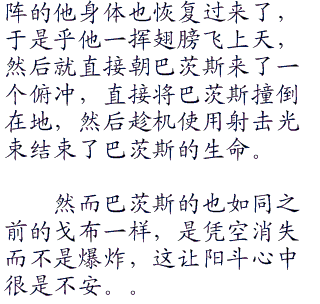 阵的他身体也恢复过来了，
于是乎他一挥翅膀飞上天，
然后就直接朝巴茨斯来了一
个俯冲，直接将巴茨斯撞倒
在地，然后趁机使用射击光
束结束了巴茨斯的生命。
然而巴茨斯的也如同之
前的戈布一样，是凭空消失
而不是爆炸，这让阳斗心中
很是不安。。